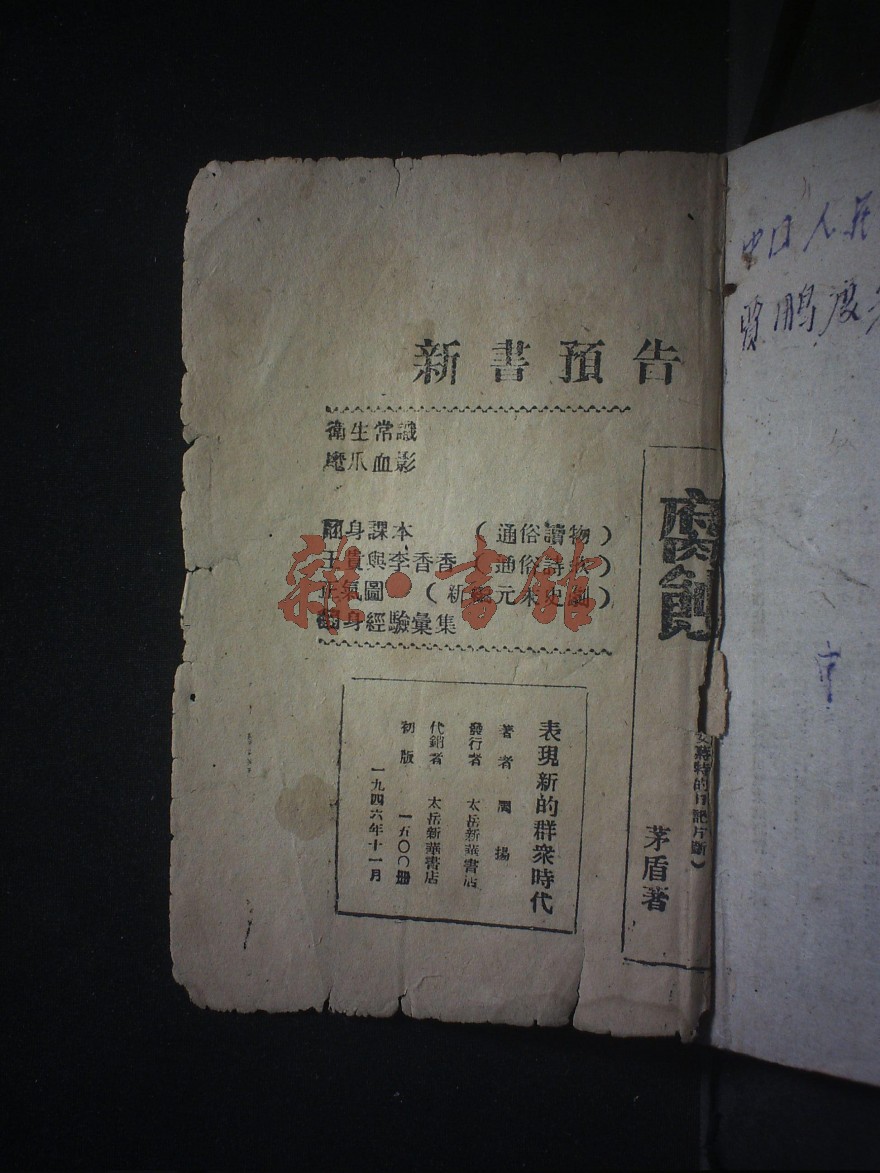 新書預告
衛生常識
魔爪血影
翻身課本（通俗讀物）
王貴與李香香（通俗詩歌）
正氣圖（新編元末史劇）
翻身經驗彙集
雜·書館
表現新的群衆時代
著者 周揚
發行者 太岳新華書店
代銷者 太岳新華書店
初版 一五〇〇册
一九四六年十一月
腐蝕
茅盾著